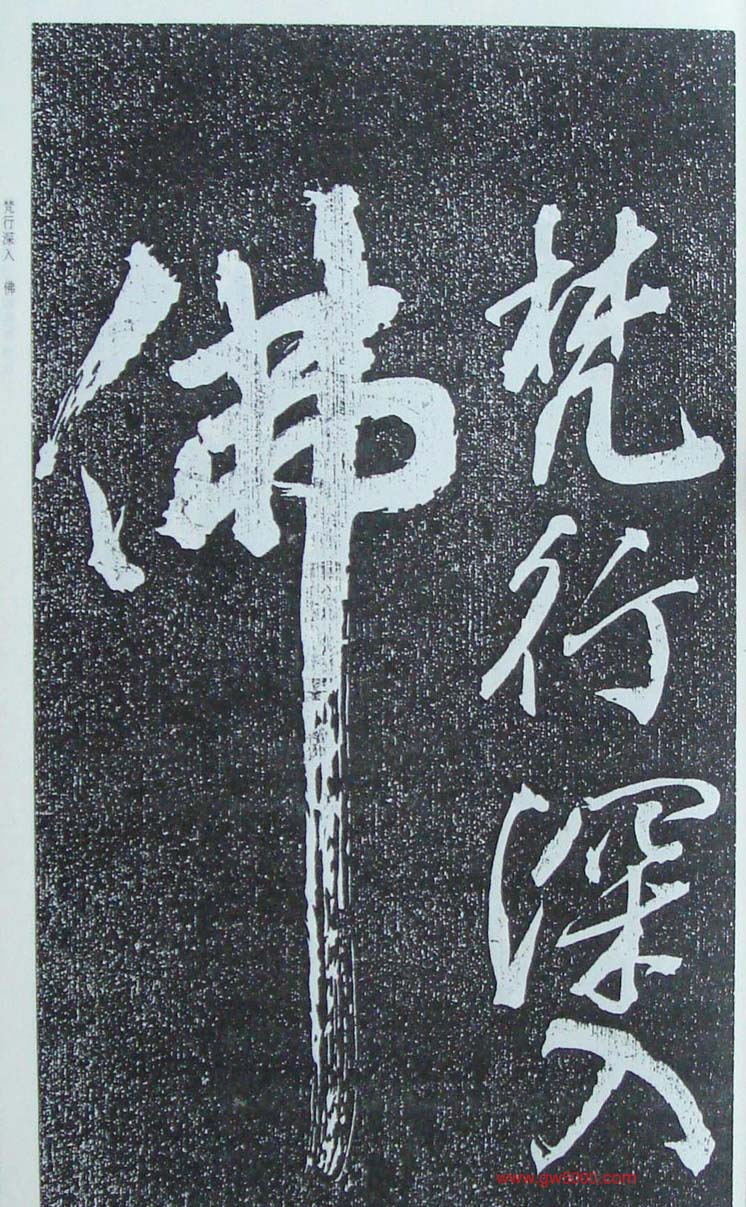 梵行深入
佛
梵行深入 佛
www.gw8000.com